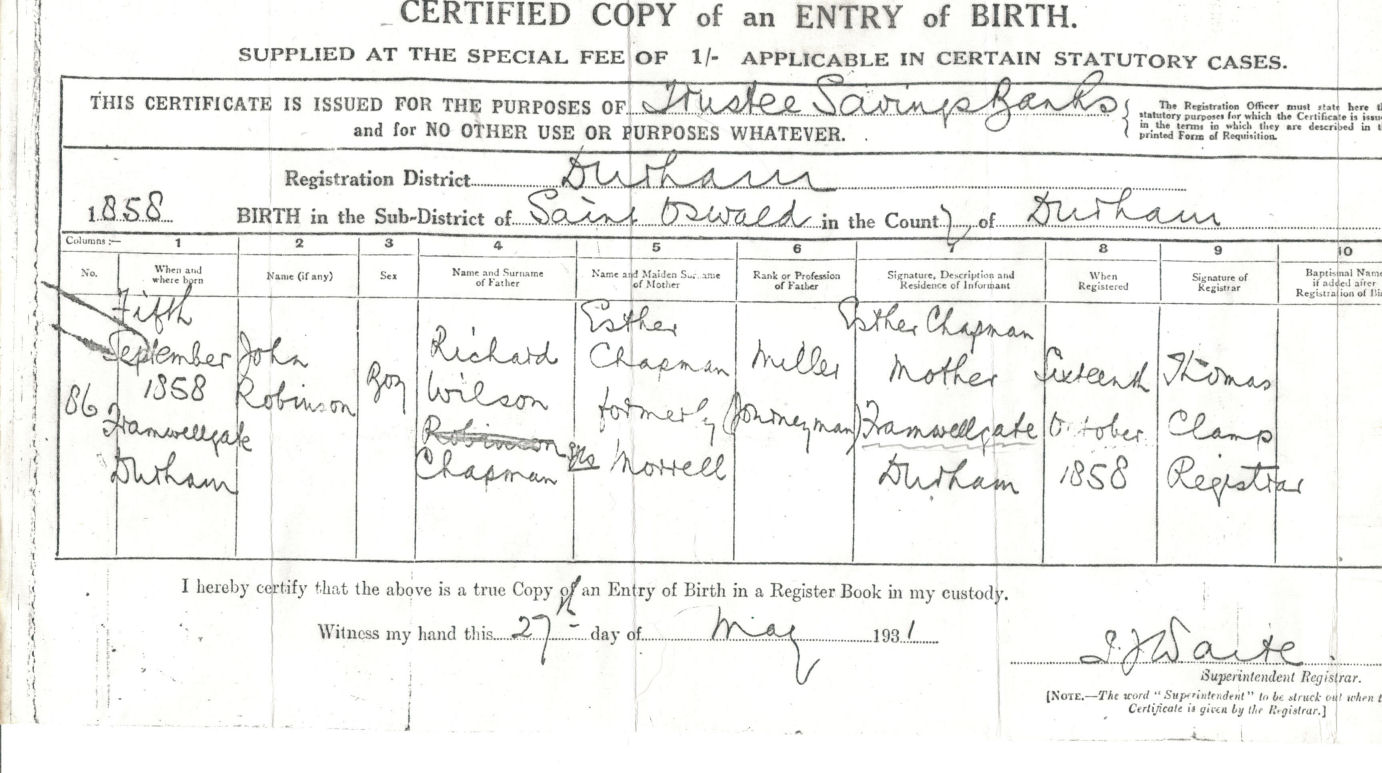 CERTIFIED COPY of an ENTRY of BIRTH.
SUPPLIED AT THE SPECIAL FEE OF 1/- APPLICABLE IN CERTAIN STATUTORY CASES.
THIS CERTIFICATE IS ISSUED FOR THE PURPOSES OF Trustee Savings Banks
and for NO OTHER USE OR PURPOSES WHATEVER.
The Registration Officer must state here th
statutory purposes for which the Certificate is issue
in the terms in which they are described in t
printed Form of Requisition.
Registration District Durham
1858 BIRTH in the Sub-District of Saint Oswald in the County of Durham
Columns:— 1 2 3 4 5 6 7 8 9 10
No.
When and
where born
Name (if any)
Sex
Name and Surname
of Father
Name and Maiden Surname
of Mother
Rank or Profession
of Father
Signature, Description and
Residence of Informant
When
Registered
Signature of
Registrar
Baptismal Name
if added after
Registration of Bi
86
Fifth
September
1858
Framwellgate
Durham
John
Robinson
Boy
Richard
Wilson
Robinson
Chapman
Esther
Chapman
formerly
Morrell
Miller
(Journeyman)
Esther Chapman
Mother
Framwellgate
Durham
Sixteenth
October
1858
Thomas
Clamp
Registrar
I hereby certify that the above is a true Copy of an Entry of Birth in a Register Book in my custody.
Witness my hand this 27th day of May 1931
Waite
Superintendent Registrar.
[NOTE.—The word "Superintendent" to be struck out when t
Certificate is given by the Registrar.]